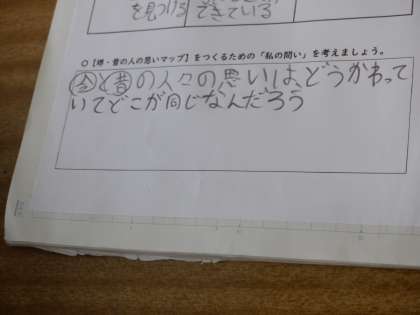 を見つける
できている
○【堺・昔の人の思いマップ】をつくるための「私の問い」を考えましょう。
今と昔の人々の思いは、どうかわって
いてどこが同じなんだろう